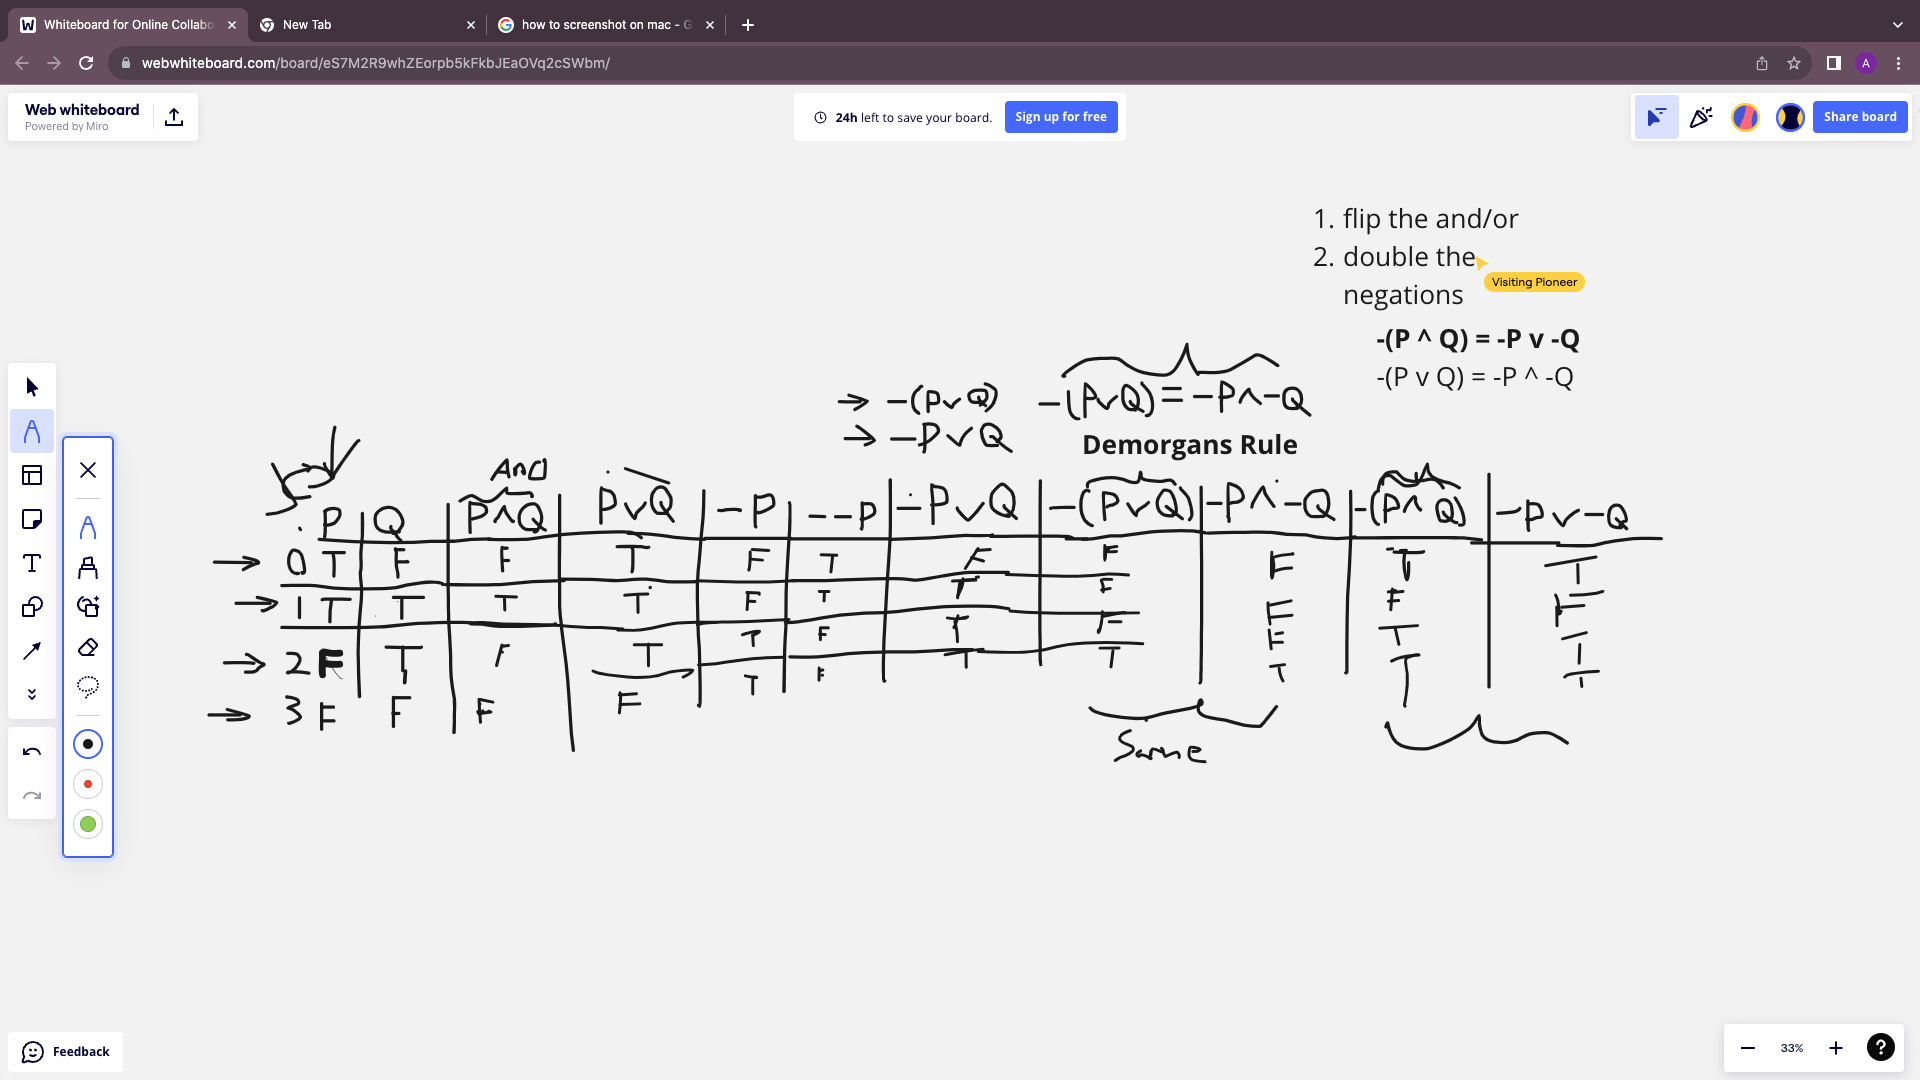 Whiteboard for Online Collabo
New Tab
how to screenshot on mac - G
webwhiteboard.com/board/eS7M2R9whZEorpb5kFkbJEaOVq2cSWbm/
A
Web whiteboard
Powered by Miro
24h left to save your board.
Sign up for free
Share board
1. flip the and/or
2. double the
negations
Visiting Pioneer
-(P ^ Q) = -P v -Q
-(P v Q) = -P ^ -Q
→ -(P∨Q) -(P∨Q) = -P∧-Q
→ -P∨Q
Demorgans Rule
And
P Q P∧Q P∨Q -P --P -P∨Q -(P∨Q) -P∧-Q -(P∧Q) -P∨-Q
→ 0 T F F T F T F F F T T
→ 1 T T T T F T T F F F F
→ 2 F T F T T F T F F T T
→ 3 F F F F T F T T T T T
Same
Feedback
33%
?